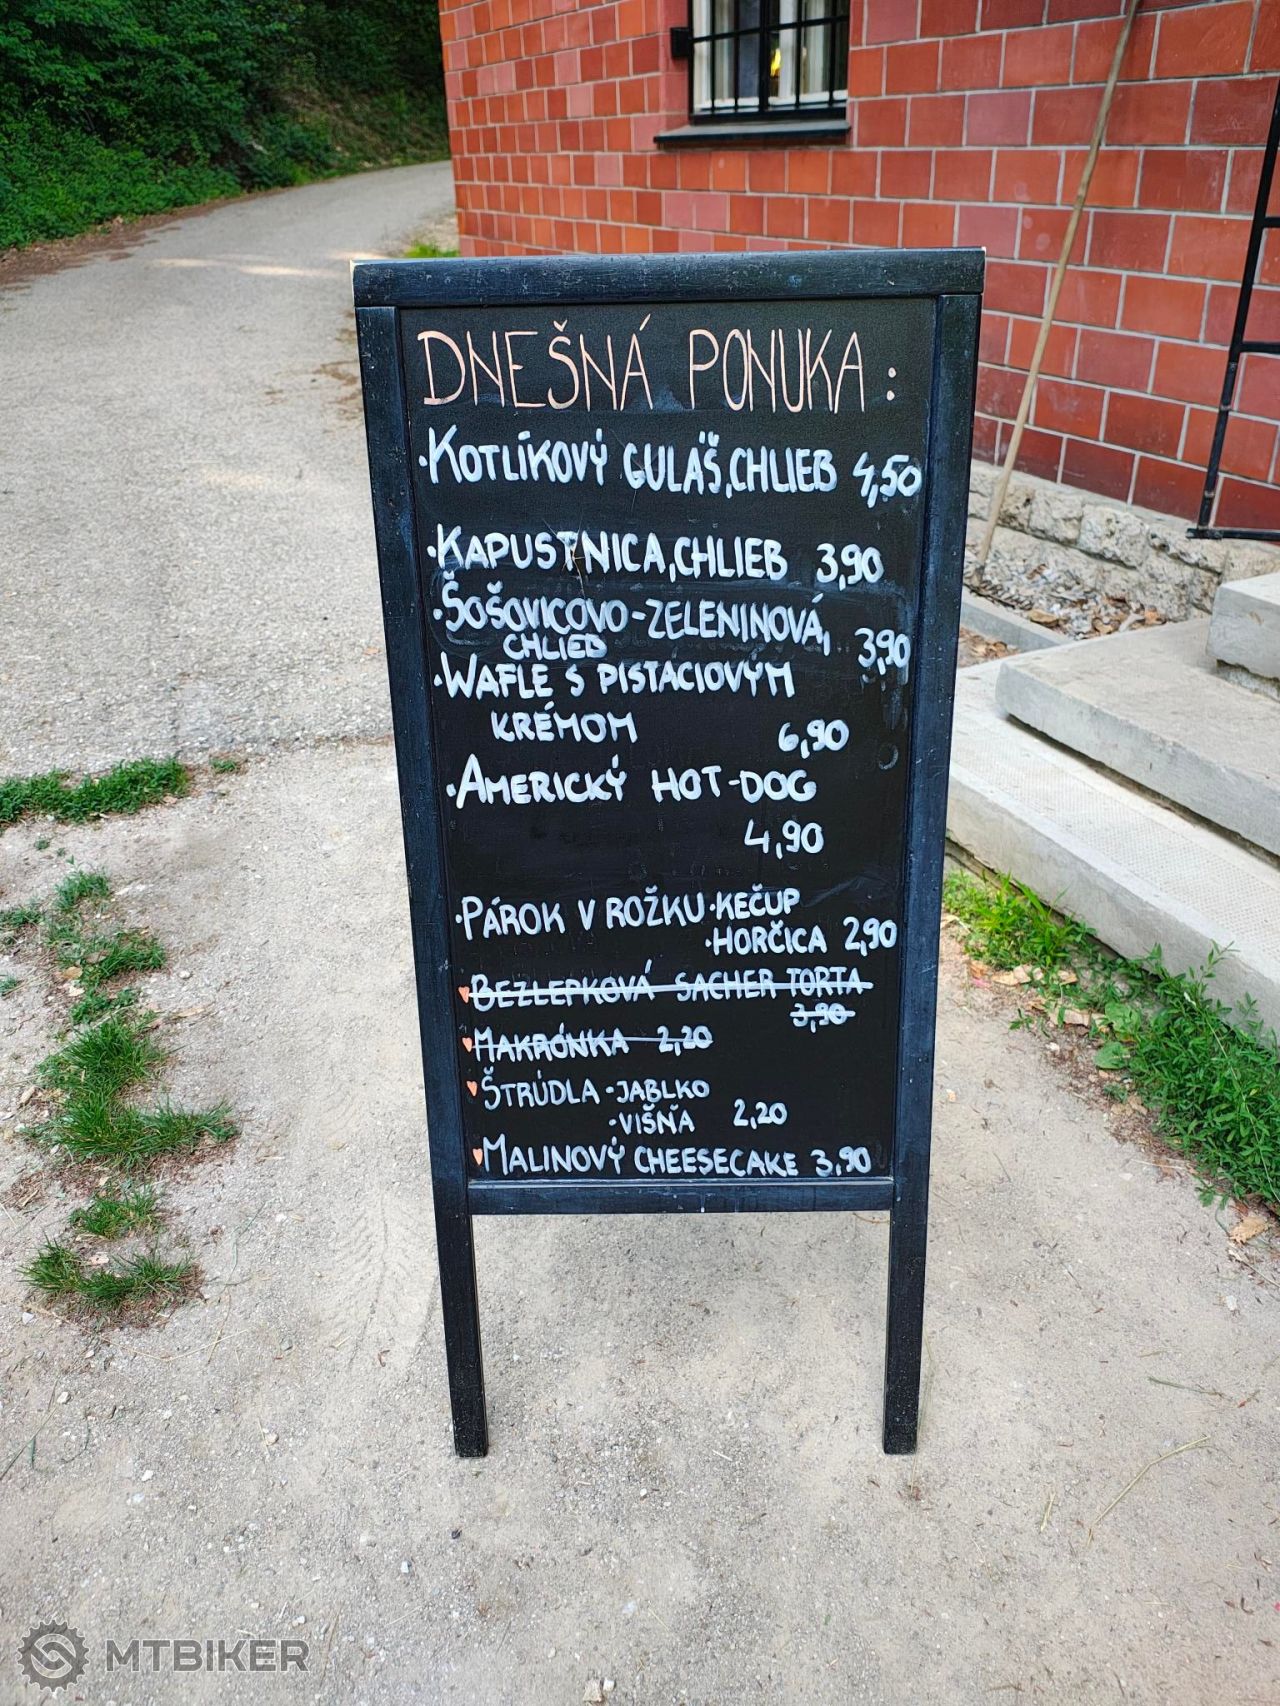 DNEŠNÁ PONUKA:
·KOTLÍKOVÝ GULÁŠ, CHLIEB 4,50
·KAPUSTNICA, CHLIEB 3,90
·ŠOŠOVICOVO-ZELENINOVÁ,
CHLIEB 3,90
·WAFLE S PISTACIOVÝM
KRÉMOM 6,90
·AMERICKÝ HOT-DOG
4,90
·PÁROK V ROŽKU ·KEČUP
·HORČICA 2,90
♥BEZLEPKOVÁ SACHER TORTA
3,90
♥MAKRÓNKA 2,20
♥ŠTRÚDLA ·JABLKO
·VIŠŇA 2,20
♥MALINOVÝ CHEESECAKE 3,90
MTBIKER